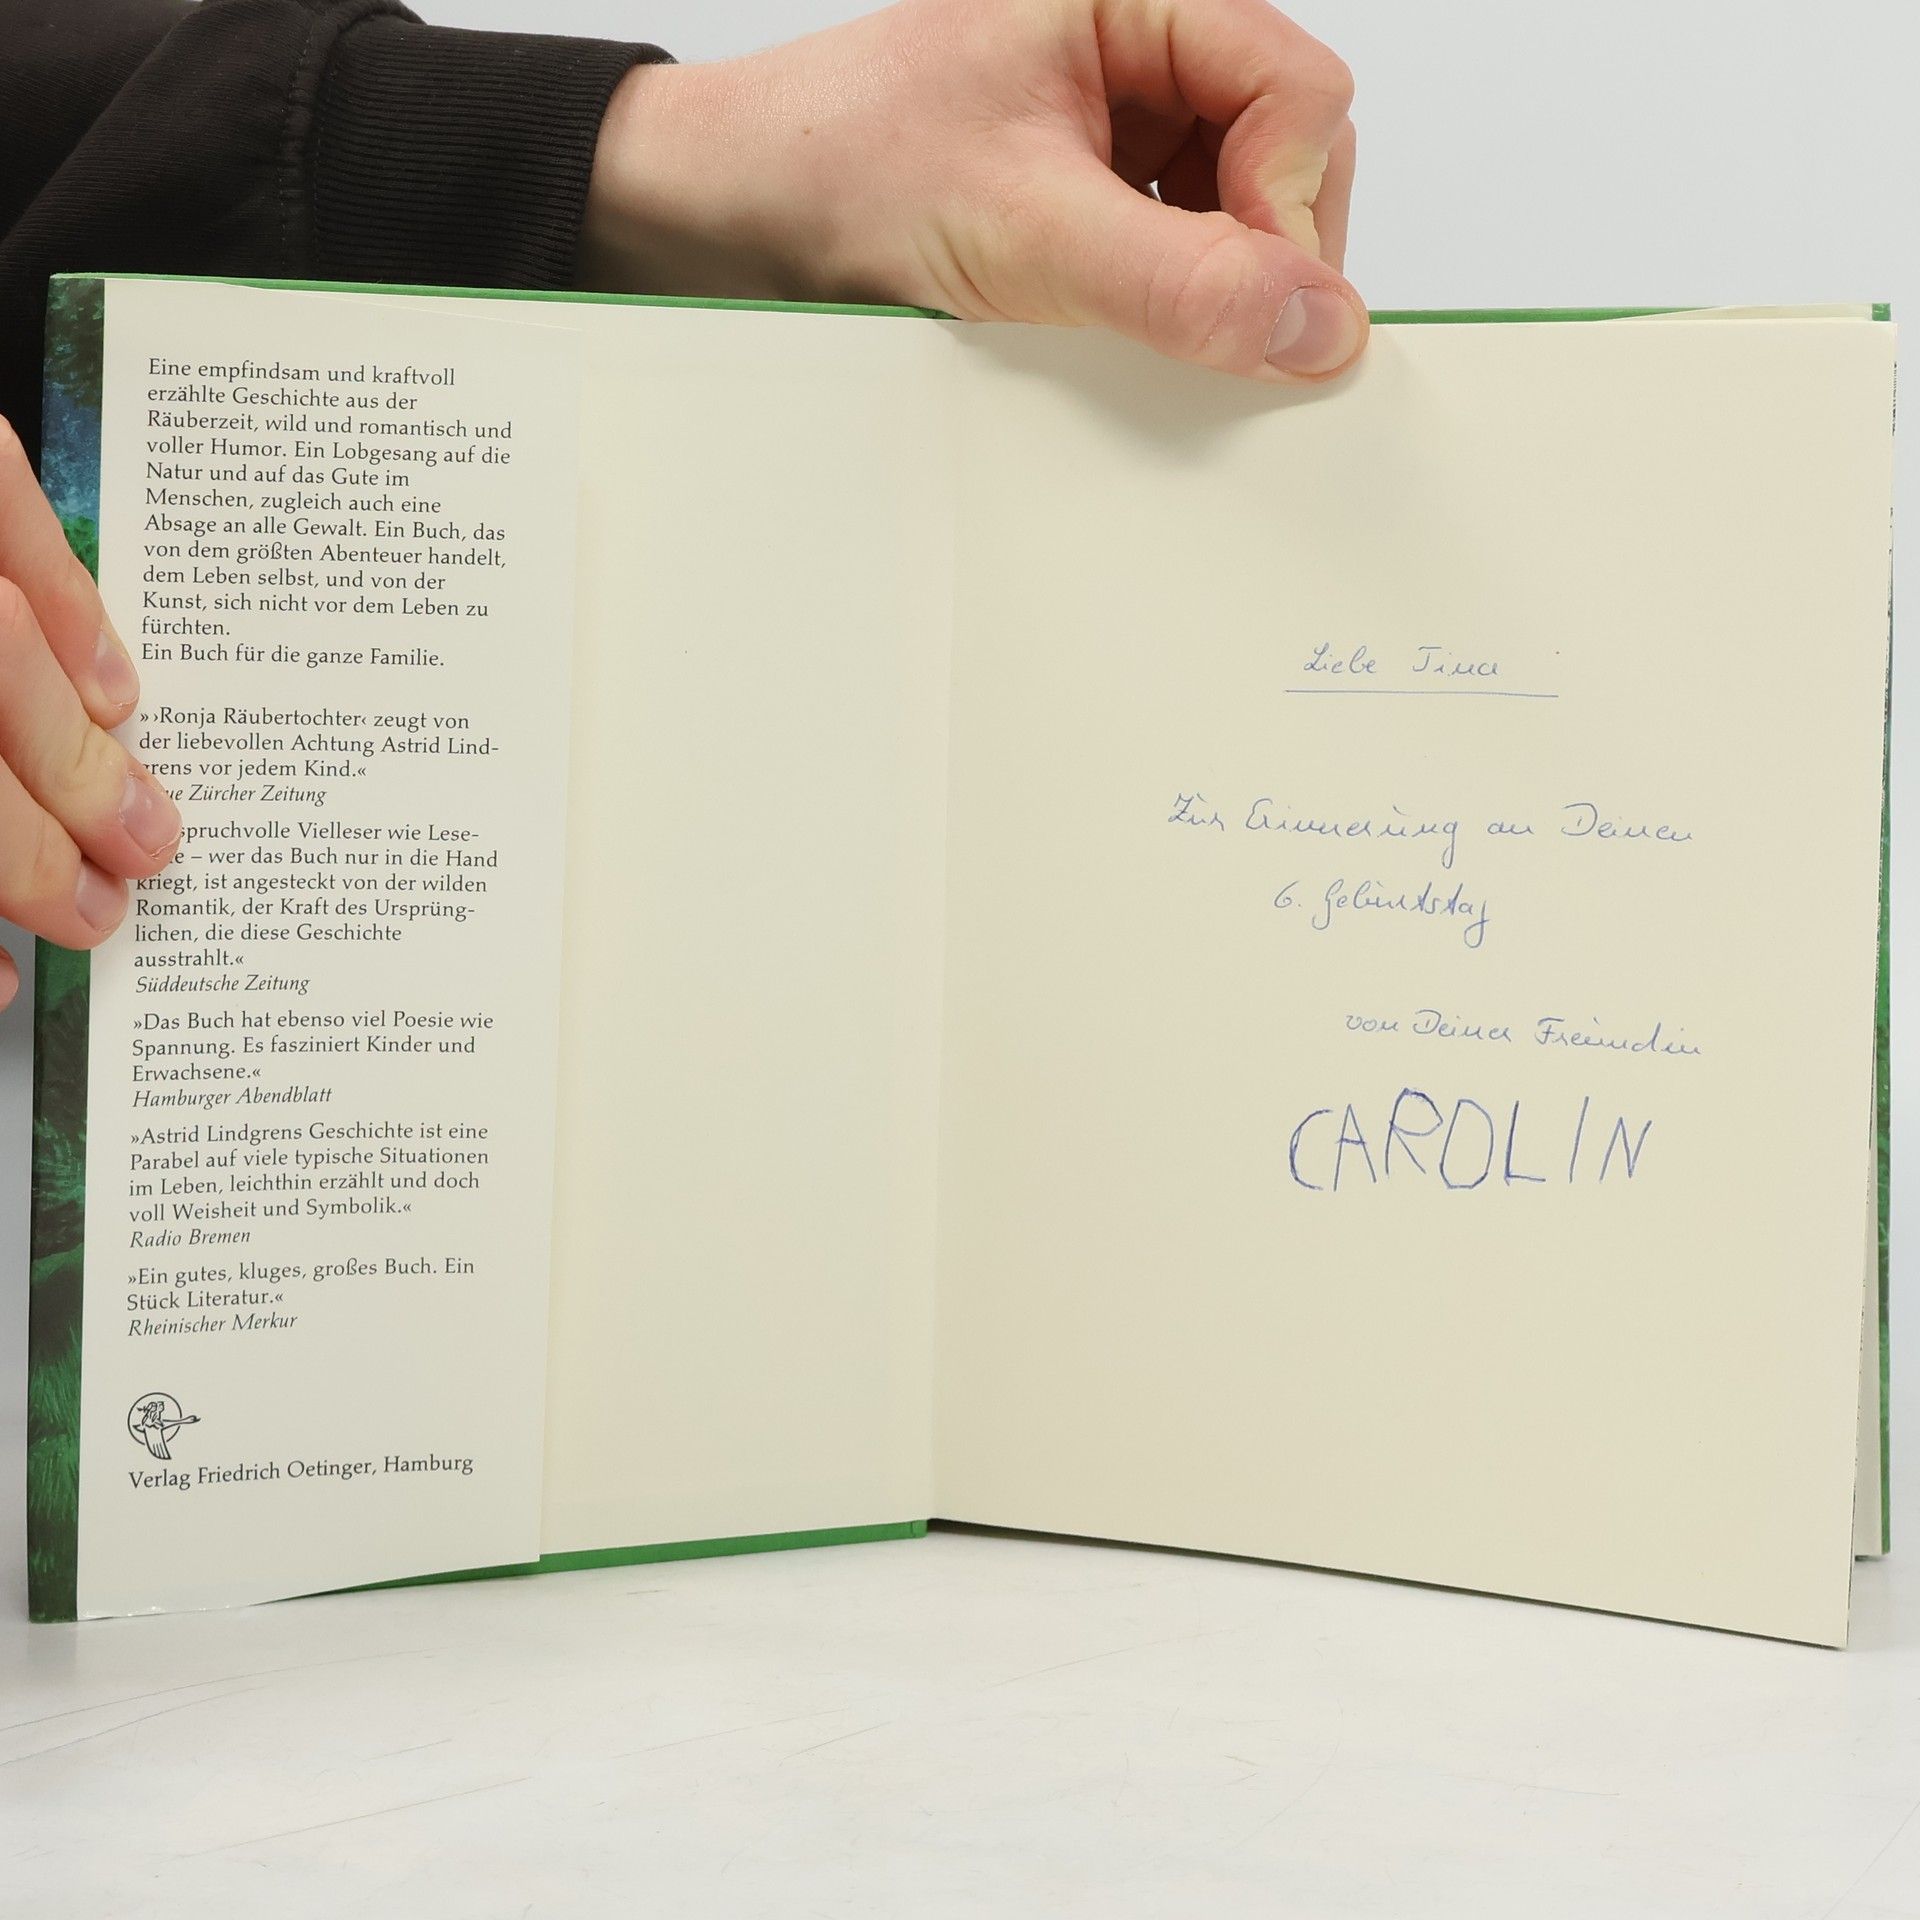 Eine empfindsam und kraftvoll
erzählte Geschichte aus der
Räuberzeit, wild und romantisch und
voller Humor. Ein Lobgesang auf die
Natur und auf das Gute im
Menschen, zugleich auch eine
Absage an alle Gewalt. Ein Buch, das
von dem größten Abenteuer handelt,
dem Leben selbst, und von der
Kunst, sich nicht vor dem Leben zu
fürchten.
Ein Buch für die ganze Familie.
»›Ronja Räubertochter‹ zeugt von
der liebevollen Achtung Astrid Lind-
grens vor jedem Kind.«
Zürcher Zeitung
spruchvolle Vielleser wie Lese-
– wer das Buch nur in die Hand
kriegt, ist angesteckt von der wilden
Romantik, der Kraft des Ursprüng-
lichen, die diese Geschichte
ausstrahlt.«
Süddeutsche Zeitung
»Das Buch hat ebenso viel Poesie wie
Spannung. Es fasziniert Kinder und
Erwachsene.«
Hamburger Abendblatt
»Astrid Lindgrens Geschichte ist eine
Parabel auf viele typische Situationen
im Leben, leichthin erzählt und doch
voll Weisheit und Symbolik.«
Radio Bremen
»Ein gutes, kluges, großes Buch. Ein
Stück Literatur.«
Rheinischer Merkur
Verlag Friedrich Oetinger, Hamburg
Liebe Tina
Zur Erinnerung an Deinen
6. Geburtstag
von Deiner Freundin
CAROLIN